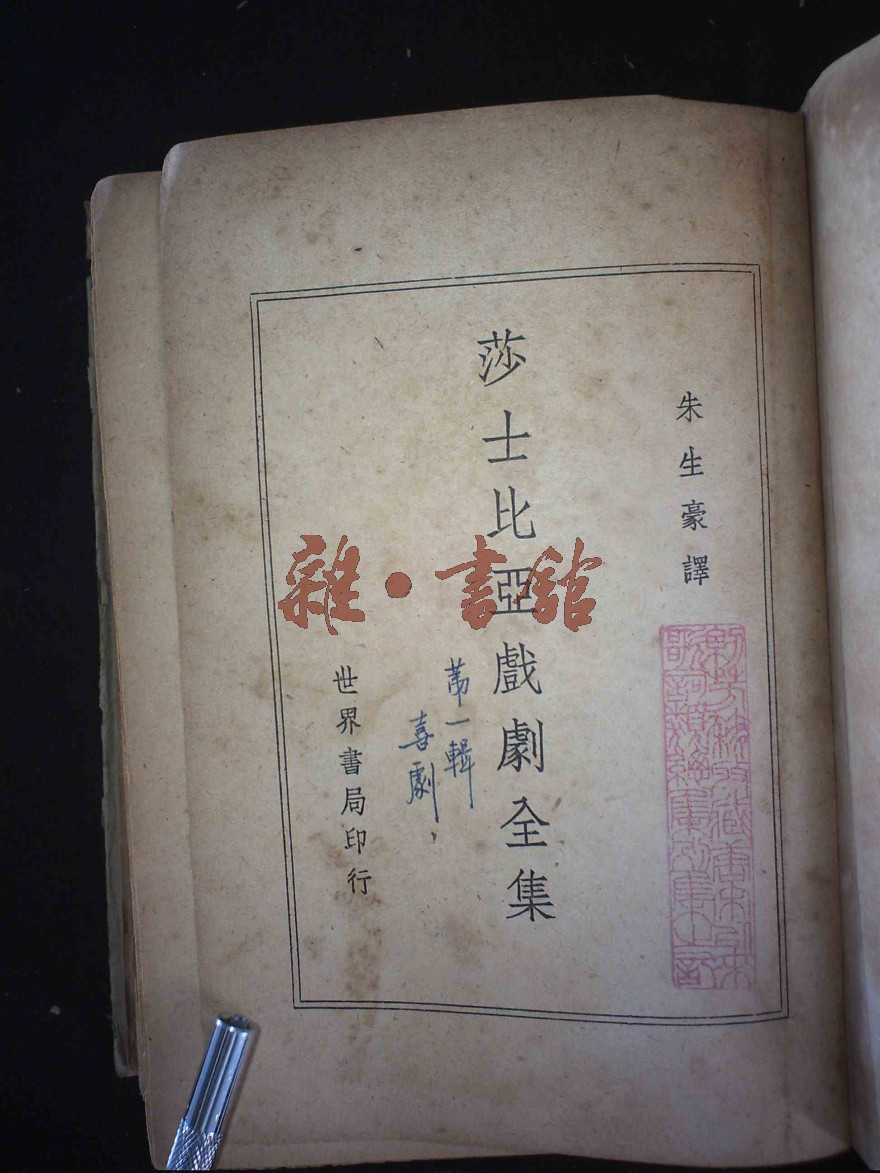 朱生豪譯
莎士比亞戲劇全集
第一輯
喜劇，
世界書局印行
雜·書館